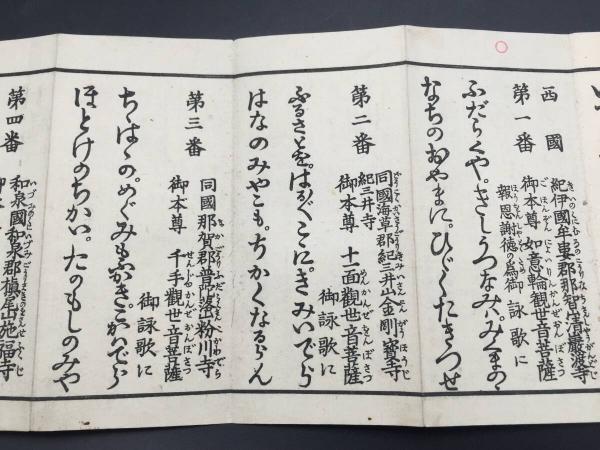 西國
第一番
紀伊國牟婁郡那智山青巖渡寺
御本尊 如意輪觀世音菩薩
報恩謝徳の爲御詠歌に
ふだらくや。きしうつなみハ。みくまの
なちのおやまに。ひゞくたきつせ
第二番
同國海草郡紀三井山金剛寳寺
紀三井寺
御本尊 十一面觀世音菩薩
御詠歌に
ふるさとを。はる〴〵こゝに。きみいでら
はなのみやこも。ちかくなるらん
第三番
同國那賀郡 粉川寺
御本尊 千手觀世音菩薩
御詠歌に
ちゝはゝの。めぐみもふかき。こかハでら
ほとけのちかい。たのもしのみや
第四番
和泉國和泉郡槇尾山施福寺